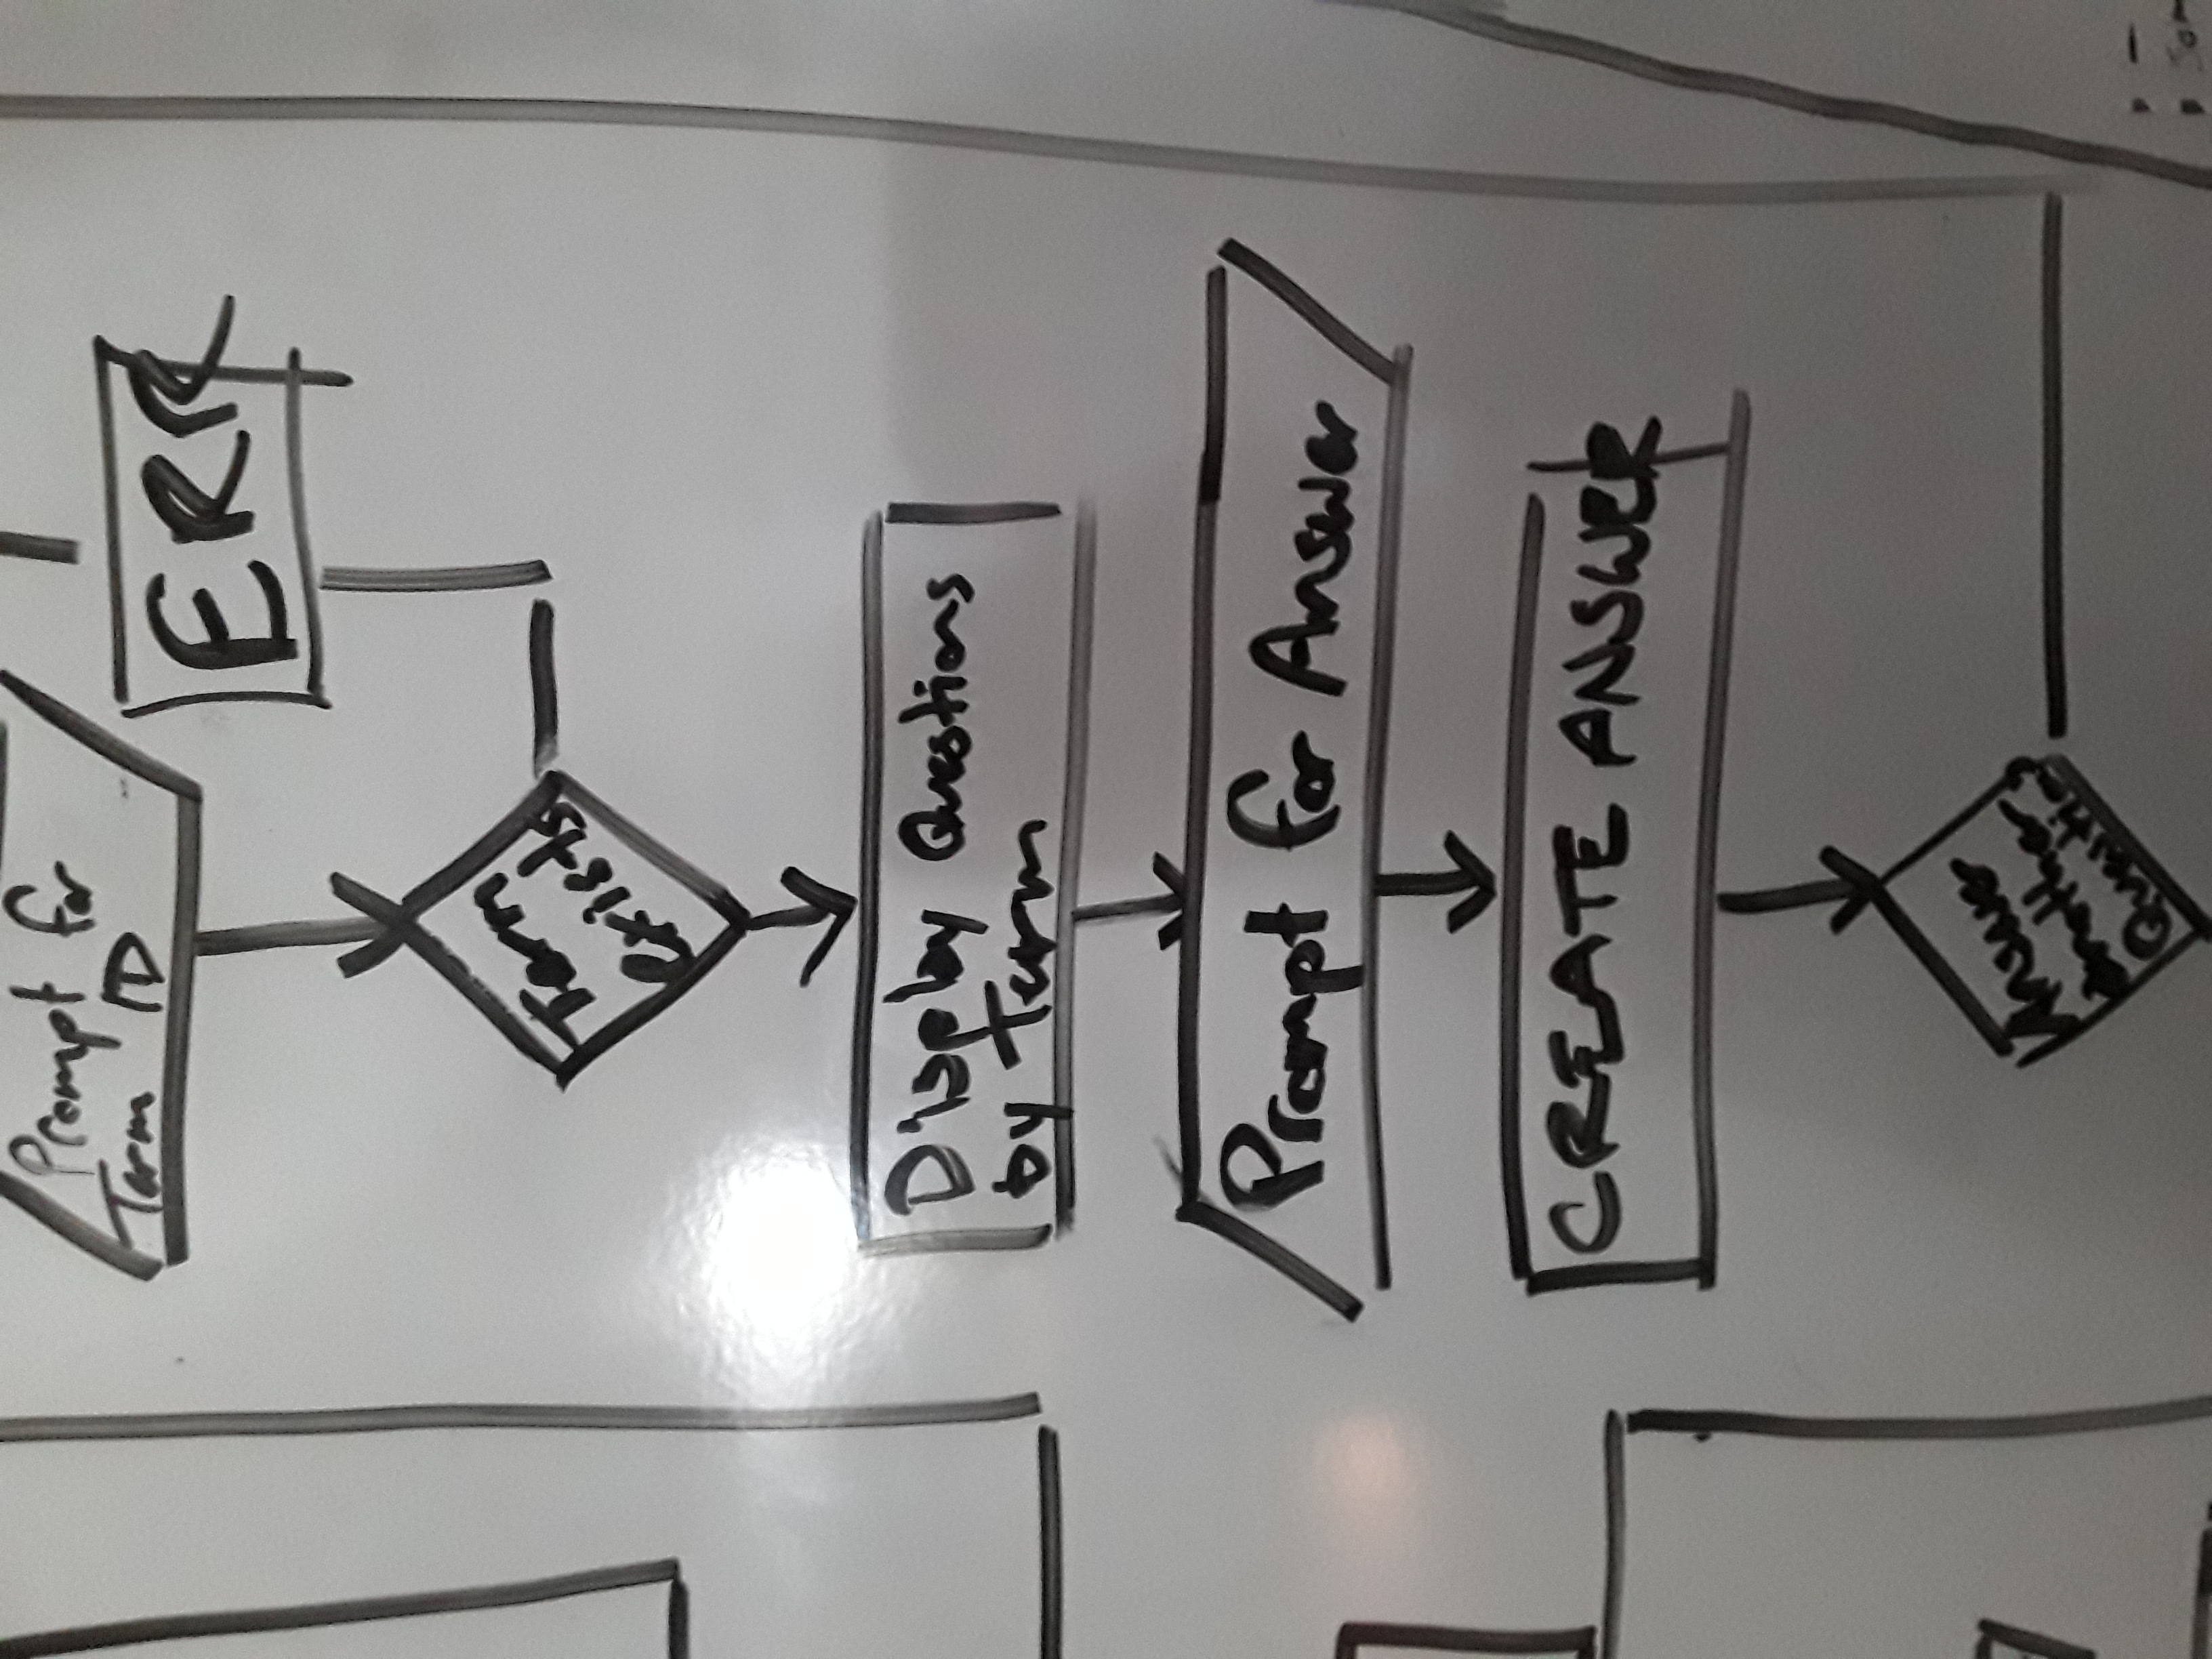 Prompt for
Term ID
ERR
Term
exists
Display Questions
by Term
Prompt for Answer
CREATE ANSWER
Answer
another
Question